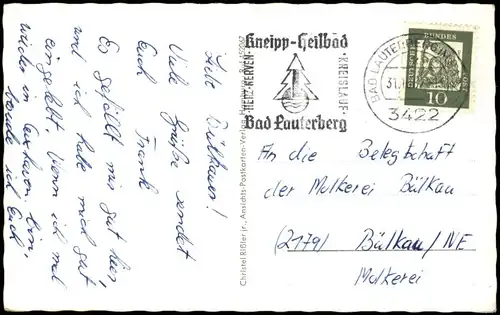 Kneipp-Heilbad
HERZ-NERVEN-
KREISLAUF-
Bad Lauterberg
BAD LAUTERBERG
31.
3422
DEUTSCHE
BUNDES
POST
10
An die Belegschaft
der Molkerei Bülkau
(2179) Bülkau/NE
Molkerei
Christel Rißler jr., Ansichts-Postkarten-Verlag
Viele Grüße sendet
Euch Frank
Es gefällt mir gut hier,
und ich habe mich gut
eingelebt. Wenn ich mal
wieder in Cuxhaven bin,
ich Euch